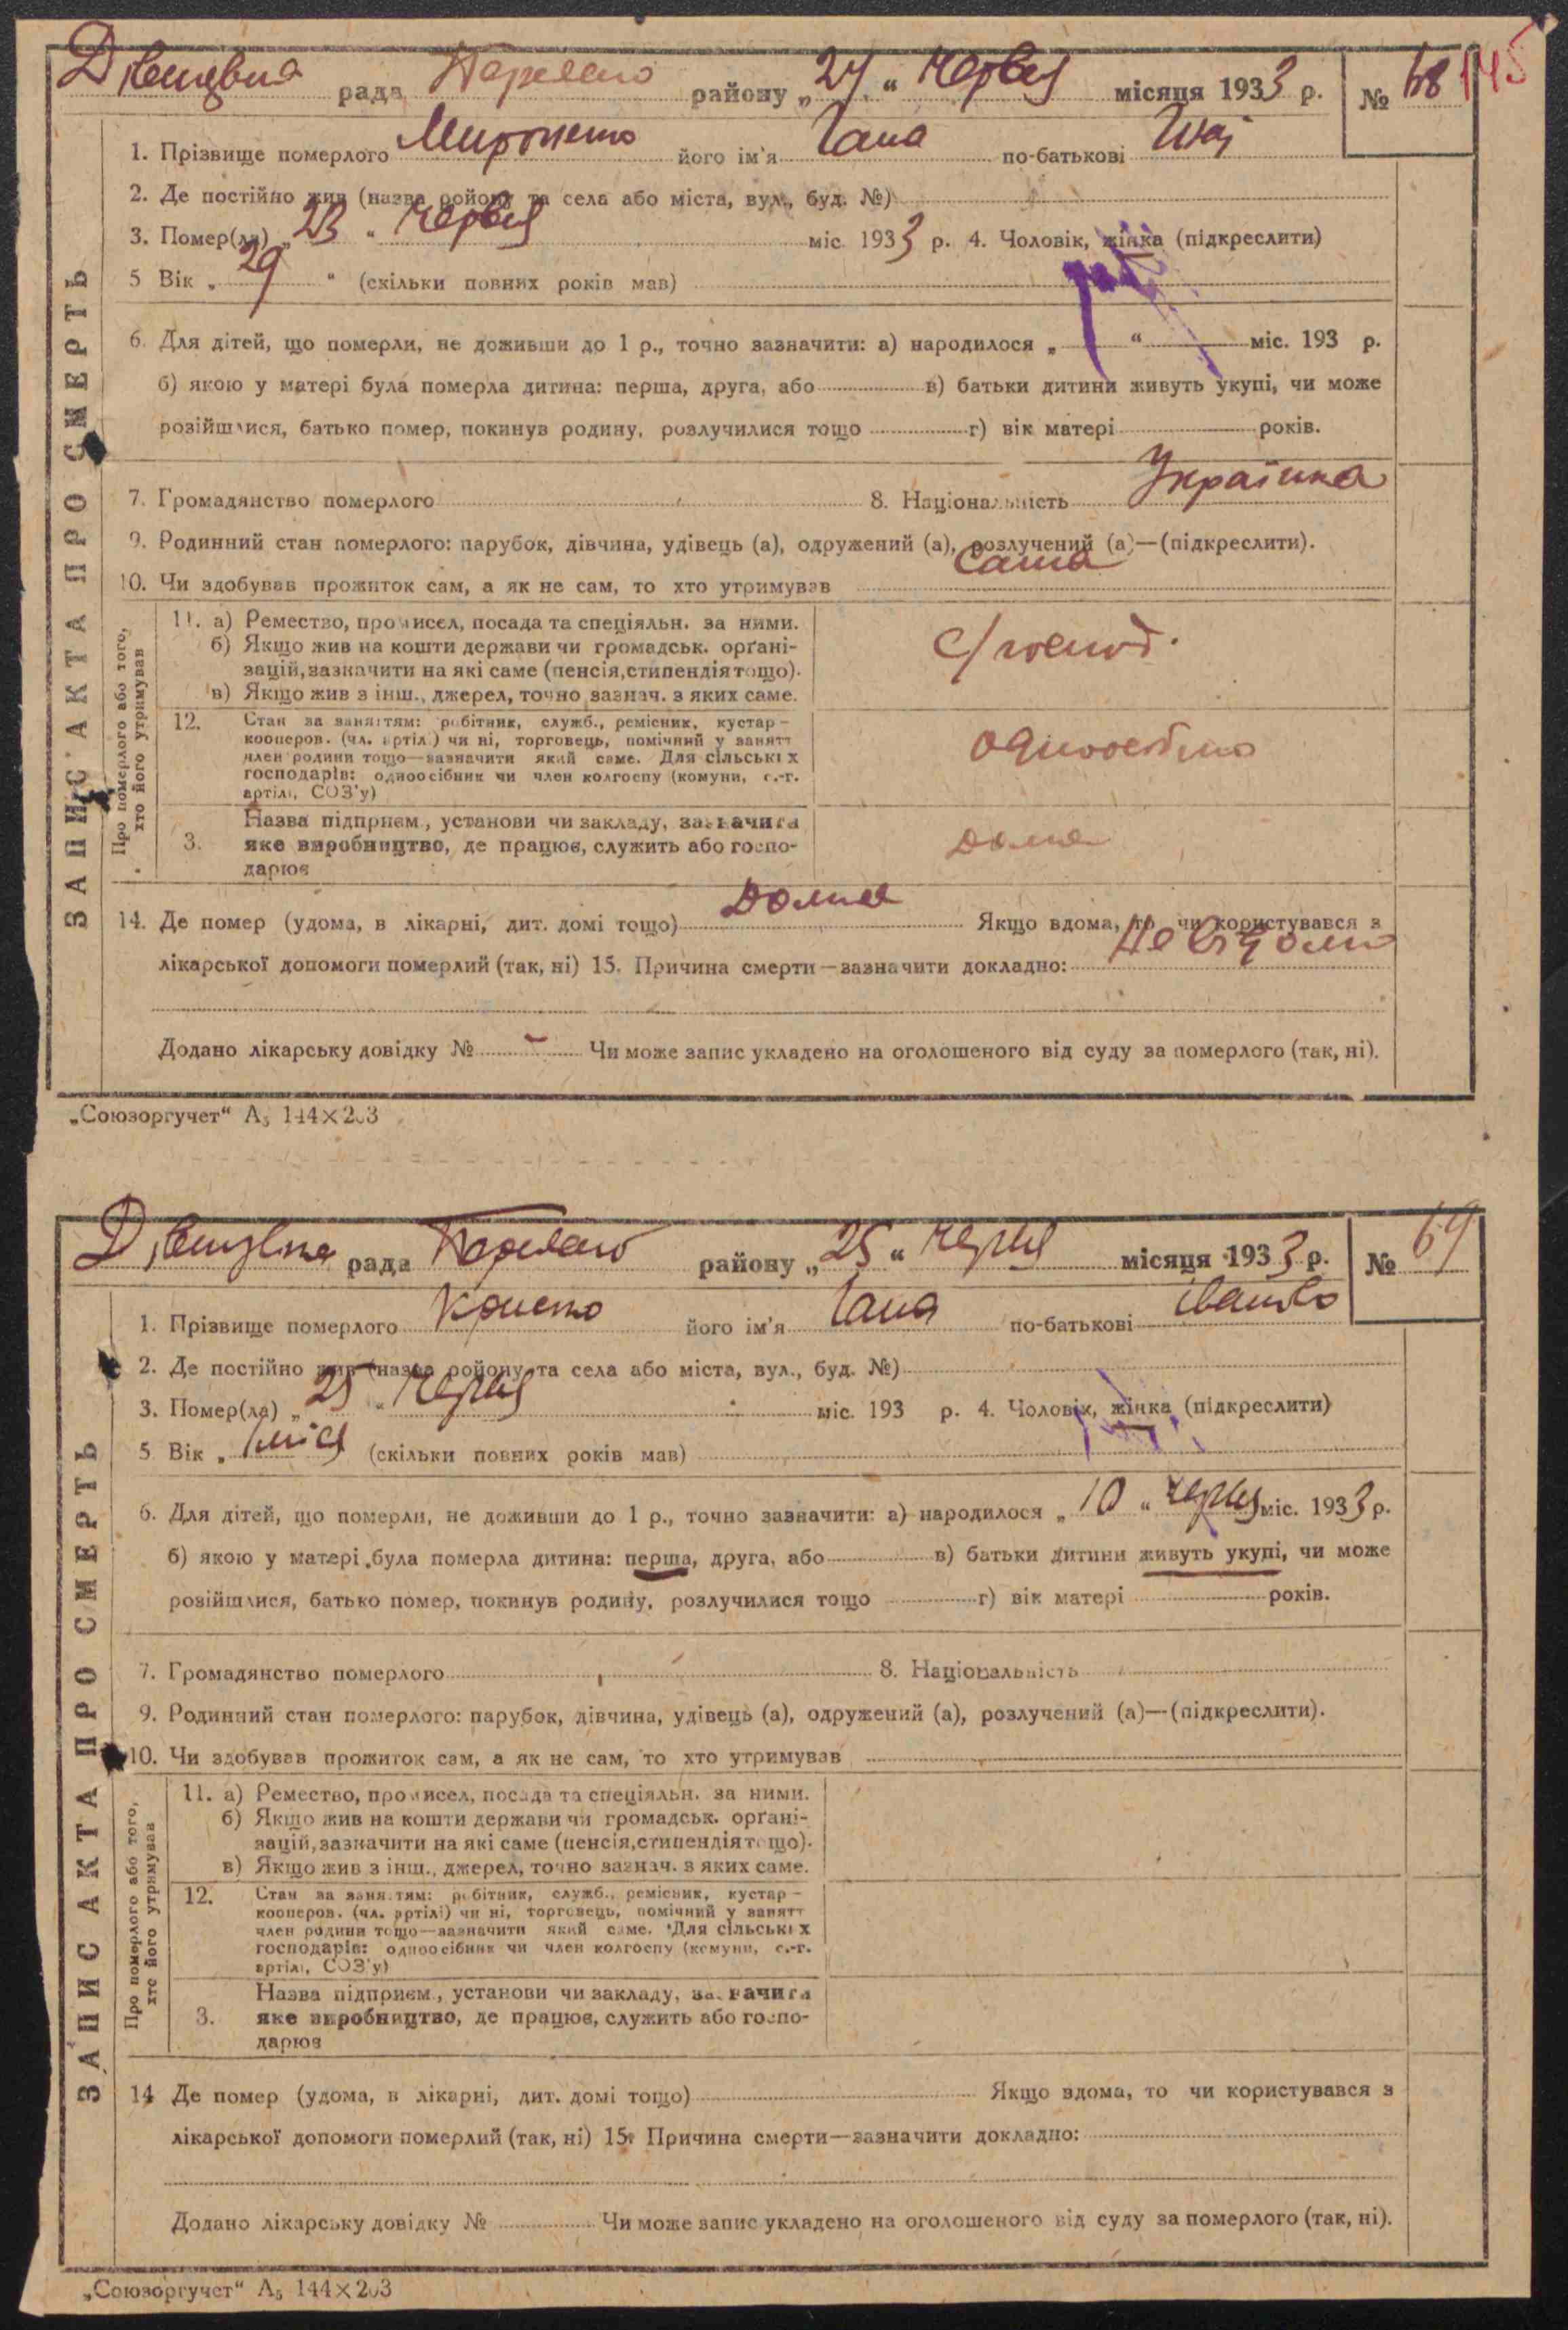 рада района „24“ Червня місяця 1933 р. № 68 145
1. Прізвище померлого Мироненко його ім'я Гана по-батькові
2. Де постійно жив (назва району та села або міста, вул., буд. №)
3. Помер(ла) „23“ Червня міс. 1933 р. 4. Чоловік, жінка (підкреслити)
5 Вік „29“ (скільки повних років мав)
6. Для дітей, що померли, не доживши до 1 р., точно зазначити: а) народилося „ “ міс. 193 р.
б) якою у матері була померла дитина: перша, друга, або в) батьки дитини живуть укупі, чи може
розійшлися, батько помер, покинув родину, розлучилися тощо г) вік матері років.
7. Громадянство померлого 8. Національність Українка
9. Родинний стан померлого: парубок, дівчина, удівець (а), одружений (а), розлучений (а)—(підкреслити).
10. Чи здобував прожиток сам, а як не сам, то хто утримував Сама
ЗАПИС АКТА ПРО СМЕРТЬ
Про померлого або того, хто його утримував
11. а) Ремество, промисел, посада та спеціяльн. за ними.
б) Якщо жив на кошти держави чи громадськ. орґані-
зацій, зазначити на які саме (пенсія, стипендія тощо).
в) Якщо жив з інш., джерел, точно зазнач. з яких саме.
12. Стан за заняттям: робітник, служб., ремісник, кустар —
кооперов. (чл. артілі) чи ні, торговець, помічний у занятт
член родини тощо—зазначити який саме. Для сільських
господарів: одноосібник чи член колгоспу (комуни, с.-г.
артілі, СОЗ'у)
3. Назва підприєм., установи чи закладу, зазначити
яке виробництво, де працює, служить або госпо-
дарює
14. Де помер (удома, в лікарні, дит. домі тощо) Дома Якщо вдома, то чи користувався з
лікарської допомоги померлий (так, ні) 15. Причина смерти—зазначити докладно: Не відомо
Додано лікарську довідку № – Чи може запис укладено на оголошеного від суду за померлого (так, ні).
„Союзоргучет“ А5 144×203
рада району „25“ Червня місяця 1933 р. № 69
1. Прізвище померлого його ім'я Гана по-батькові Іванівн
2. Де постійно жив (назва району та села або міста, вул., буд. №)
3. Помер(ла) „25“ Червня міс. 193 р. 4. Чоловік, жінка (підкреслити)
5 Вік „ (скільки повних років мав)
6. Для дітей, що померли, не доживши до 1 р., точно зазначити: а) народилося „10“ Червня міс. 1933 р.
б) якою у матері була померла дитина: перша, друга, або в) батьки дитини живуть укупі, чи може
розійшлися, батько помер, покинув родину, розлучилися тощо г) вік матері років.
7. Громадянство померлого 8. Національність
9. Родинний стан померлого: парубок, дівчина, удівець (а), одружений (а), розлучений (а)—(підкреслити).
10. Чи здобував прожиток сам, а як не сам, то хто утримував
ЗАПИС АКТА ПРО СМЕРТЬ
Про померлого або того, хто його утримував
11. а) Ремество, промисел, посада та спеціяльн. за ними.
б) Якщо жив на кошти держави чи громадськ. орґані-
зацій, зазначити на які саме (пенсія, стипендія тощо).
в) Якщо жив з інш., джерел, точно зазнач. з яких саме.
12. Стан за заняттям: робітник, служб., ремісник, кустар —
кооперов. (чл. артілі) чи ні, торговець, помічний у занятт
член родини тощо—зазначити який саме. Для сільських
господарів: одноосібник чи член колгоспу (комуни, с.-г.
артілі, СОЗ'у)
3. Назва підприєм., установи чи закладу, зазначити
яке виробництво, де працює, служить або госпо-
дарює
14 Де помер (удома, в лікарні, дит. домі тощо) Якщо вдома, то чи користувався з
лікарської допомоги померлий (так, ні) 15. Причина смерти—зазначити докладно:
Додано лікарську довідку № Чи може запис укладено на оголошеного від суду за померлого (так, ні).
„Союзоргучет“ А5 144×203